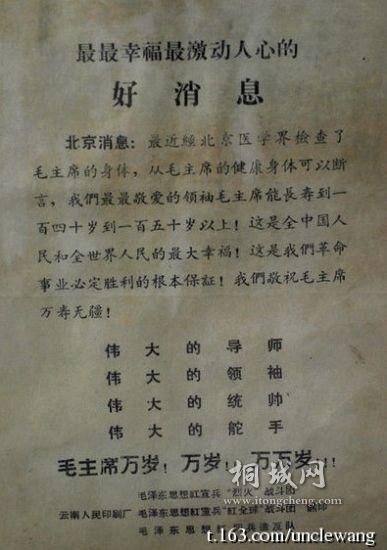 最最幸福最激动人心的
好消息
北京消息：最近經北京医学界檢查了
毛主席的身体，从毛主席的健康身体可以断
言，我們最最敬爱的领袖毛主席能長寿到一
百四十岁到一百五十岁以上！这是全中国人
民和全世界人民的最大幸福！这是我們革命
事业必定胜利的根本保証！我們敬祝毛主席
万寿无疆！
伟大的导师
伟大的领袖
伟大的统帅
伟大的舵手
毛主席万岁！万岁！万万岁！！！
毛泽东思想紅宣兵“烈火”战斗团
云南人民印刷厂 毛泽东思想紅宣兵“紅全球”战斗团 翻印
毛泽东思想 造反队
桐城网
www.itongcheng.com
t.163.com/unclewang